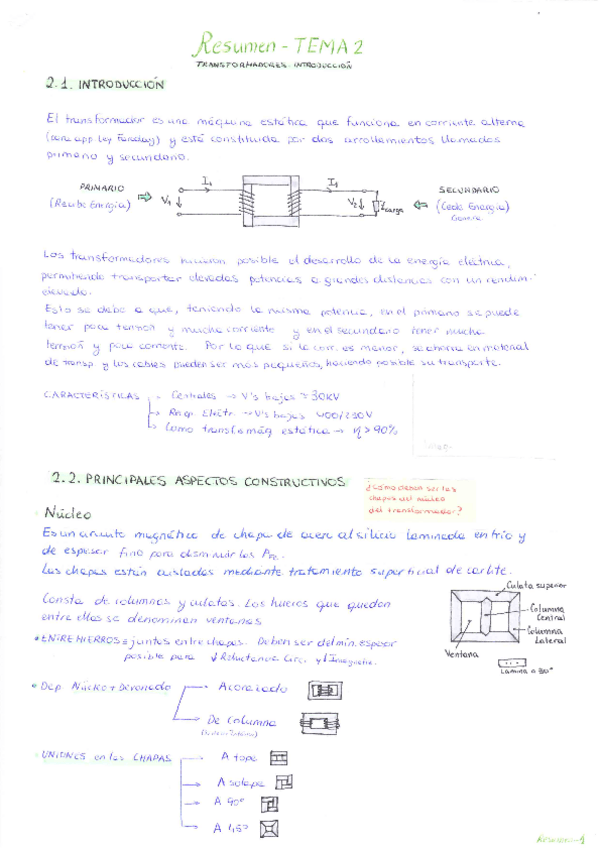 Resumen - TEMA 2
TRANSFORMADORES: INTRODUCCIÓN
2.1. INTRODUCCIÓN
El transformador es una máquina estática que funciona en corriente alterna
(para app. Ley Faraday) y está constituida por dos arrollamientos llamados
primario y secundario.
PRIMARIO
(Recibe Energía)
V1
I1
I1
V2
Zcarga
SECUNDARIO
(Cede Energía)
Los transformadores hicieron posible el desarrollo de la energía eléctrica,
permitiendo transportar elevadas potencias a grandes distancias con un rendim.
elevado.
Esto se debe a que, teniendo la misma potencia, en el primario se puede
tener poca tensión y mucha corriente y en el secundario tener mucha
tensión y poca corriente. Por lo que si la corr. es menor, se ahorra en material
de transp. y los cables pueden ser más pequeños, haciendo posible su transporte.
CARACTERÍSTICAS
Centrales → V's bajas ≈ 30KV
Eléctr. → V's bajas 400/230V
Como transfo máq estática → η > 90%
2.2. PRINCIPALES ASPECTOS CONSTRUCTIVOS
¿Cómo deben ser las
chapas del núcleo
del transformador?
Núcleo
Es un circuito magnético de chapa de acero al silicio laminada en frío y
de espesor fino para disminuir las PFe.
Las chapas están aisladas mediante tratamiento superficial de carlite.
Consta de columnas y culatas. Los huecos que quedan
entre ellas se denominan ventanas
Culata superior
Columna
Central
Columna
Lateral
Ventana
• ENTREHIERROS juntas entre chapas. Deben ser del mín. espesor
posible para ↓ Reluctancia Circ. y ↓ Imagnetiz.
• Dep. Núcleo + Devanado
Acorazado
De Columna
• UNIONES en las CHAPAS
A tope
A solape
A 90°
A 45°
Resumen-1